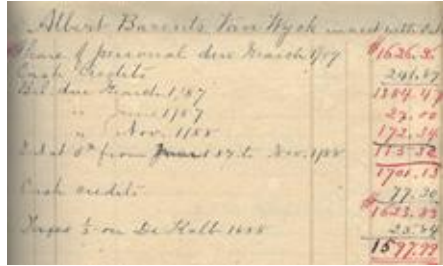 Albert Barents Van Wyck in acct with
Share of personal due March 1/87 $1626.
Cash Credits 241.87
Bal due March 1/87 1384.47
" June 1/87 27.00
" Nov. 1/88 172.34
Int at 6% from 87 to Nov. 1/88 115.32
1701.13
Cash credits 77.30
$1623.83
Taxes ½ on De Kalb 25.84
1597.99